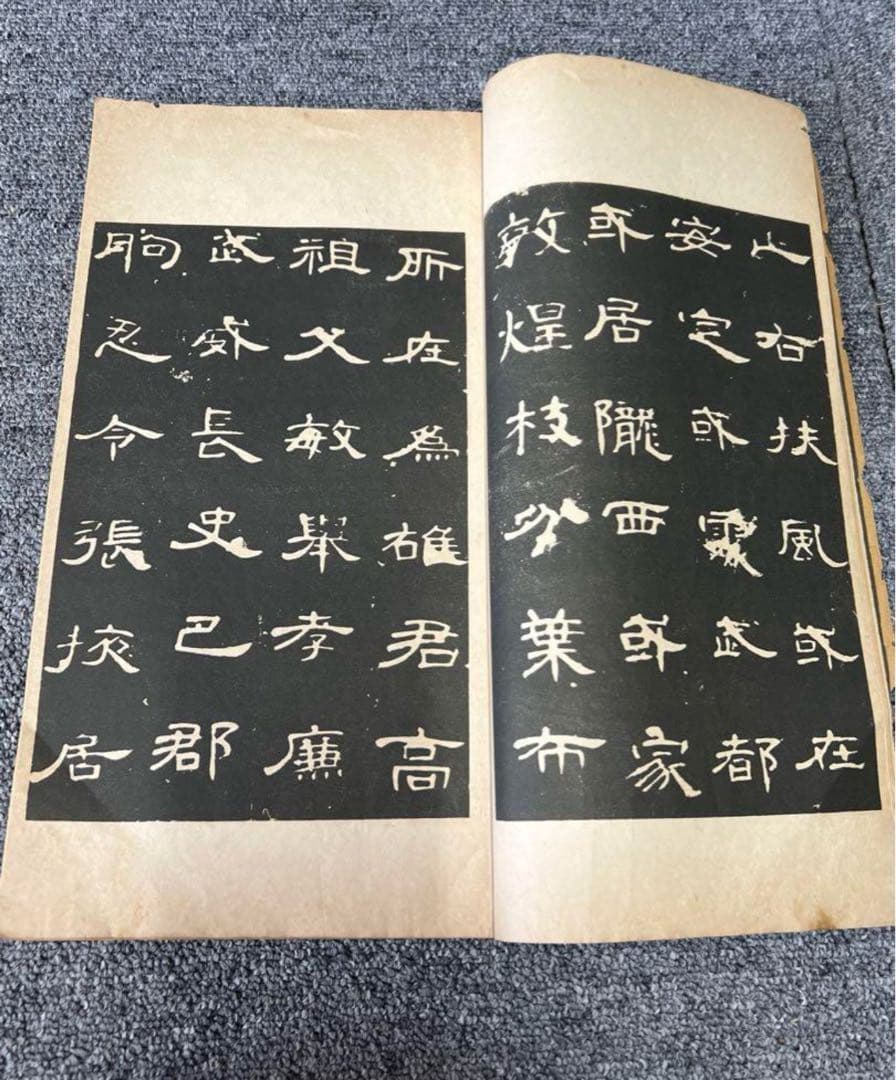 止右扶風或在
安定或處武都
或居隴西或家
敦煌枝分葉布
所在為雄君高
祖父敏舉孝廉
武威長史巴郡
朐忍令張掖居